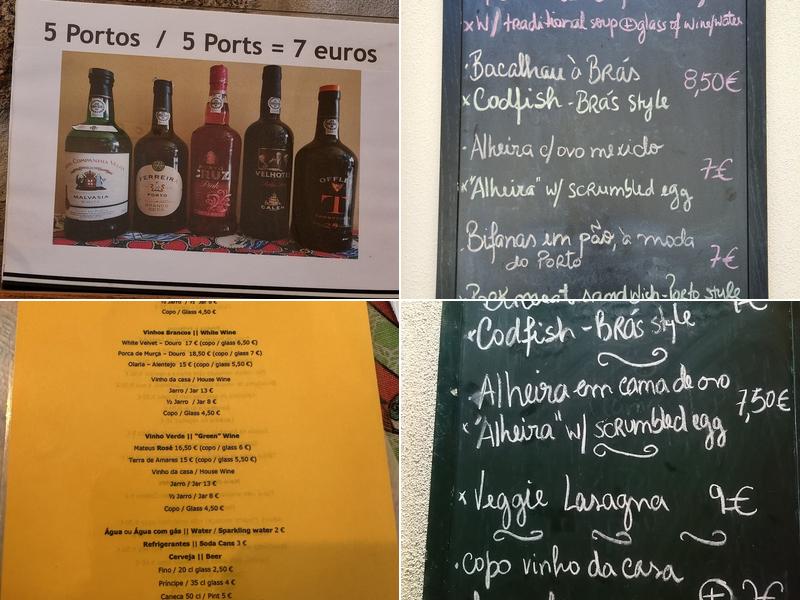 5 Portos / 5 Ports = 7 euros
COMPANHIA VELHA
MALVASIA
FERREIRA
PORTO
CRUZ
Pink
VELHOTES
CÁLEM
OFFLEY
x w/ traditional soup + glass of wine/water
· Bacalhau à Brás
8,50€
x Codfish - Brás style
· Alheira c/ovo mexido
7€
x "Alheira" w/ scrumbled egg
· Bifanas em pão, à moda
do Porto
7€
sandwich - Porto style
½ Jarro / ½ Jar 8 €
Copo / Glass 4,50 €
Vinhos Brancos || White Wine
White Velvet – Douro 17 € (copo / glass 6,50 €)
Porca de Murça – Douro 18,50 € (copo / glass 7 €)
Olaria – Alentejo 15 € (copo / glass 5,50 €)
Vinho da casa / House Wine
Jarro / Jar 13 €
½ Jarro / Jar 8 €
Copo / Glass 4,50 €
Vinho Verde || "Green" Wine
Mateus Rosé 16,50 € (copo / glass 6 €)
Terra de Amares 15 € (copo / glass 5,50 €)
Vinho da casa / House Wine
Jarro / Jar 13 €
½ Jarro / Jar 8 €
Copo / Glass 4,50 €
Água ou Água com gás || Water / Sparkling water 2 €
Refrigerantes || Soda Cans 3 €
Cerveja || Beer
Fino / 20 cl glass 2,50 €
Príncipe / 35 cl glass 4 €
Caneca 50 cl / Pint 5 €
x Codfish - Brás style
Alheira em cama de ovo
7,50€
x "Alheira" w/ scrumbled egg
x Veggie Lasagna 9€
· copo vinho da casa